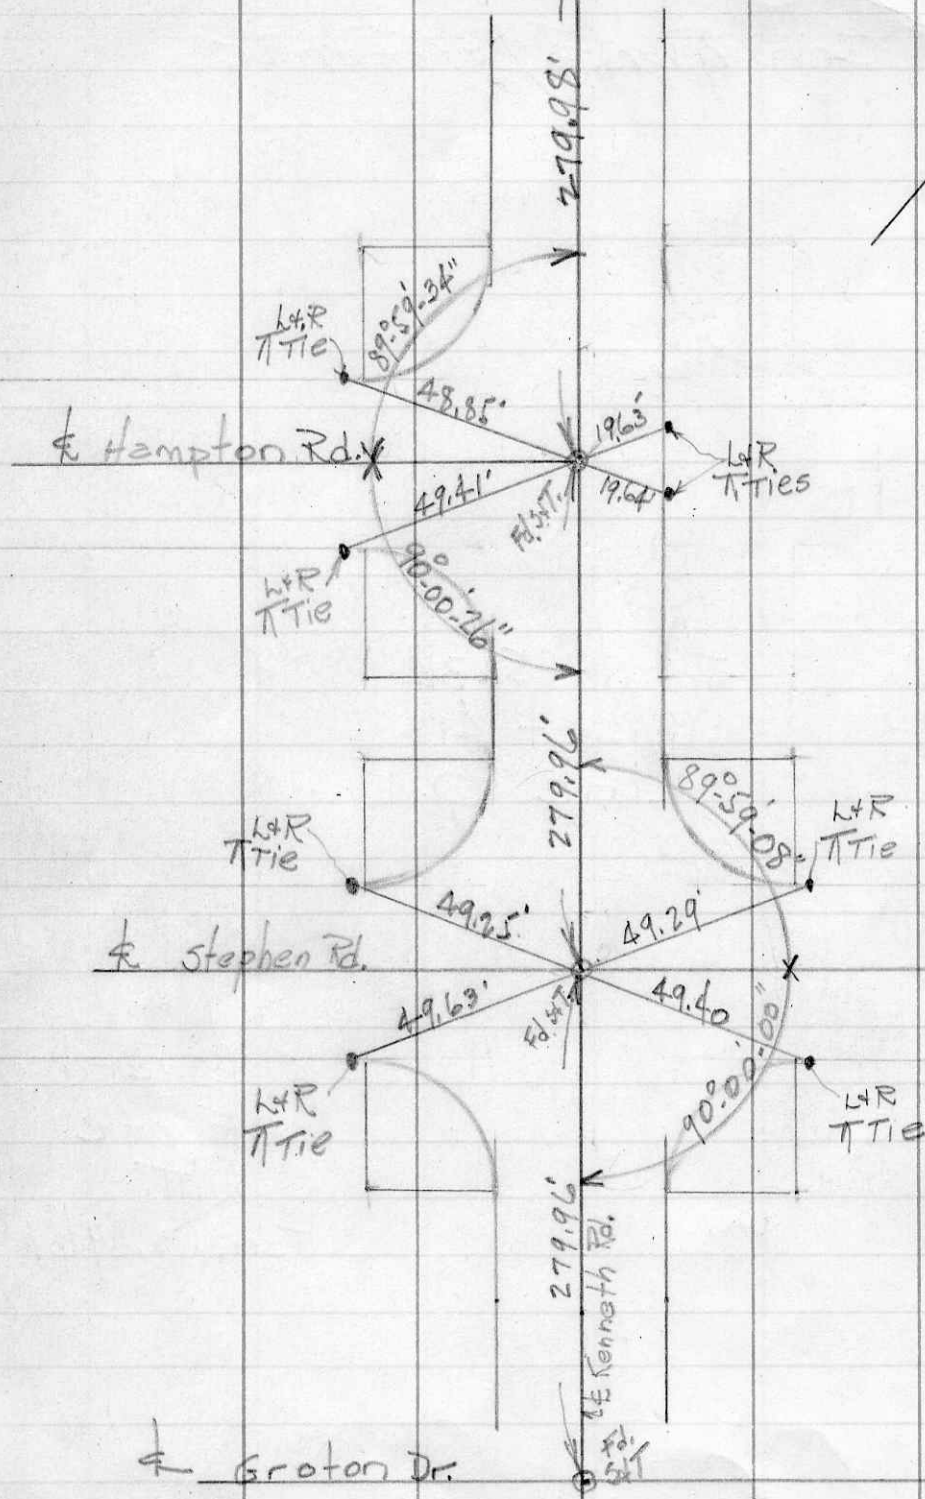 279.98'
89°-59'-34"
L&R
π Tie
48.85'
19.63'
℄ Hampton Rd.
L&R
π Ties
49.41'
19.64'
Fd. S&T.
L&R
π Tie
90°-00'-26"
279.96'
89°-59'-08"
L&R
π Tie
L&R
π Tie
49.25'
49.29'
℄ Stephen Rd.
49.63'
49.40
Fd. S&T
90°-00'-00"
L&R
π Tie
L&R
π Tie
279.96'
℄ Kenneth Rd.
Fd.
S&T
℄ Groton Dr.